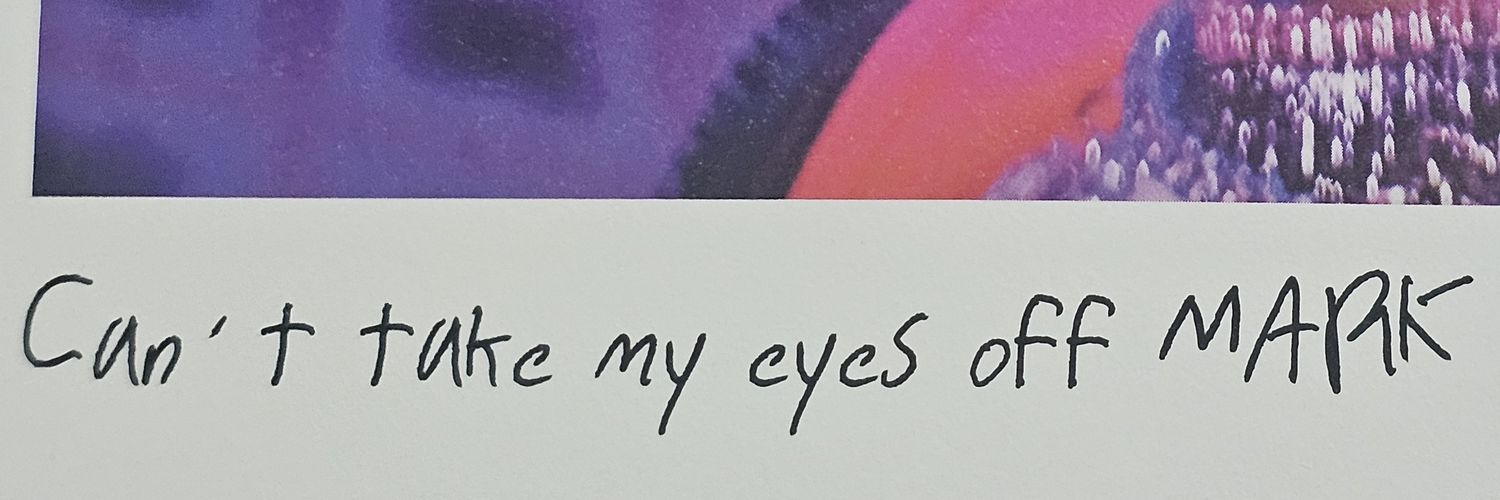 Can't take my eyes off MARK